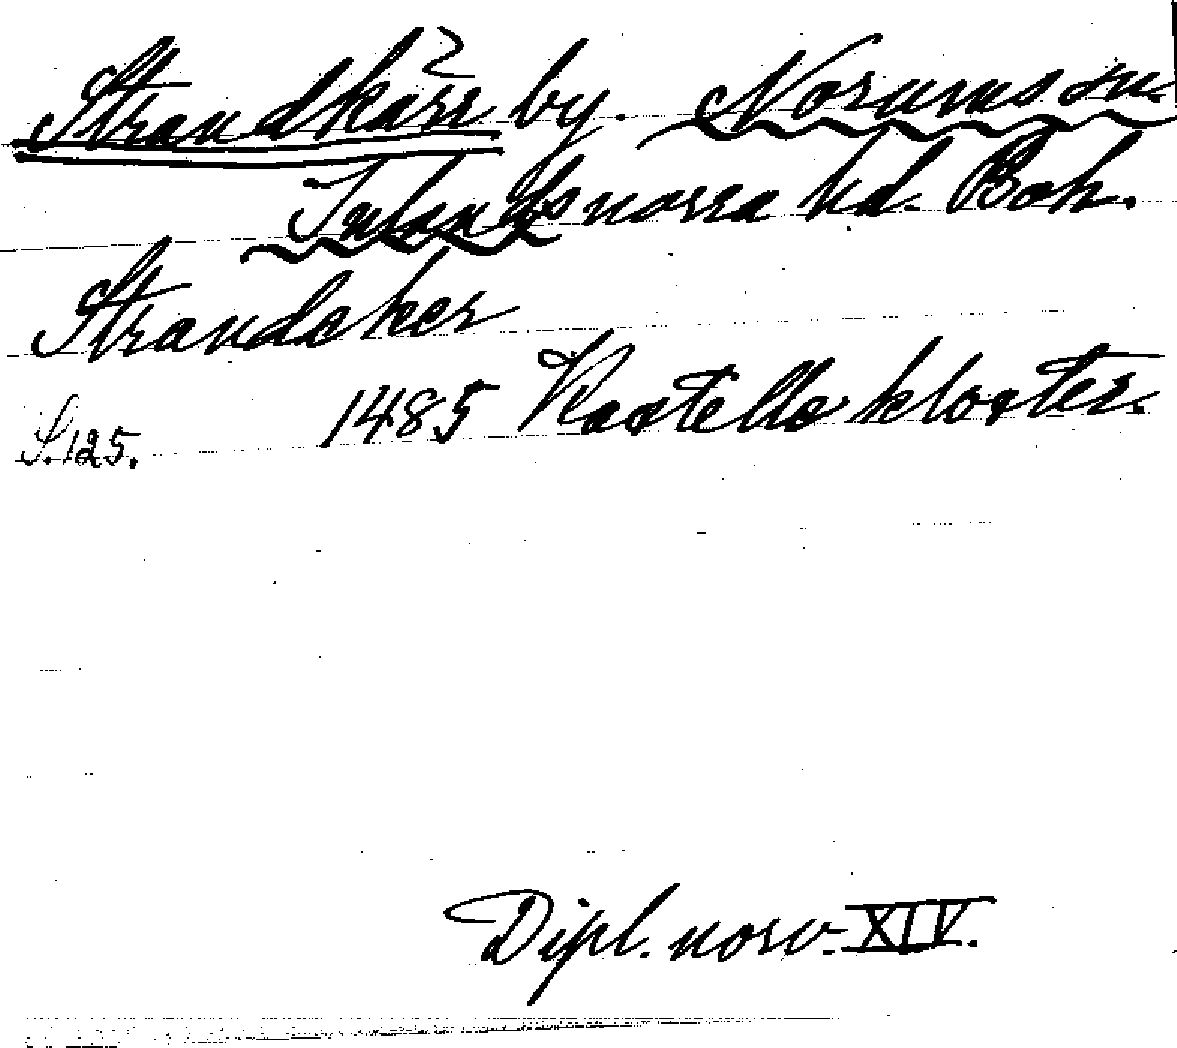 Strandkärr? by. Norums sn.
Inlands norra hd. Boh.
Strandeker
S. 125. 1485 Kastello kloster.
Dipl. norv. XIV.